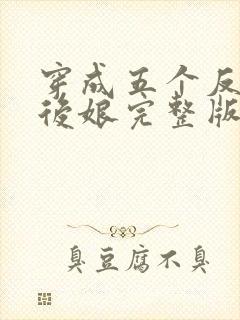 穿成五个反
后娘完整版
臭豆腐不臭